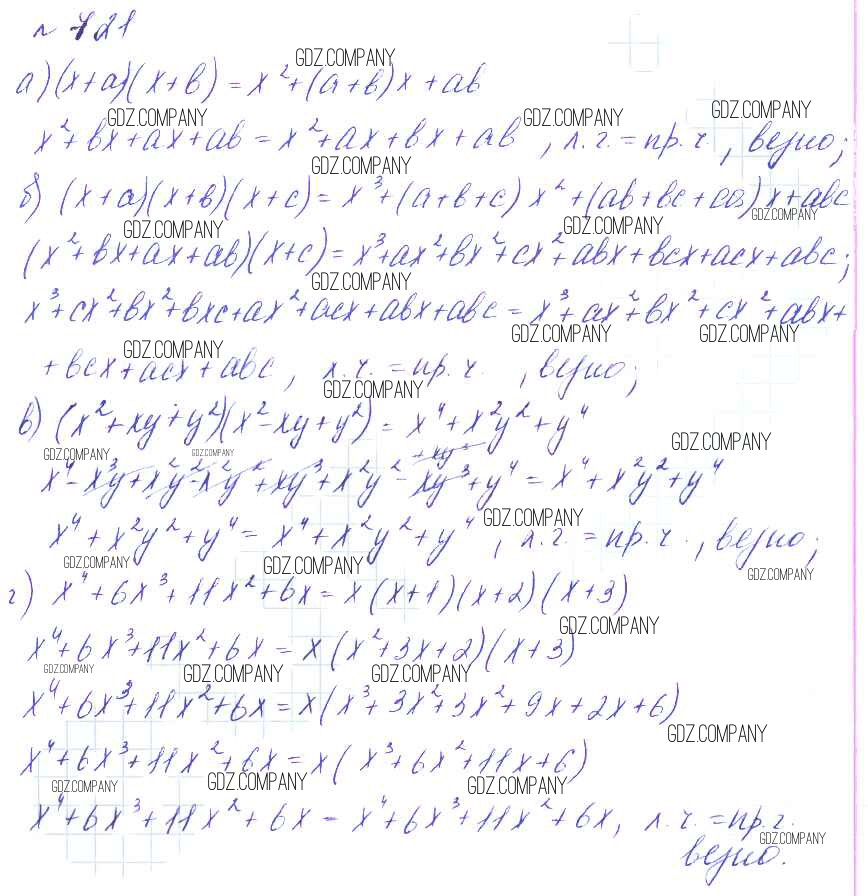 № 421
GDZ.COMPANY
а) (x+a)(x+b) = x²+(a+b)x+ab
GDZ.COMPANY GDZ.COMPANY GDZ.COMPANY
x²+bx+ax+ab = x²+ax+bx+ab, л.ч. = пр.ч., верно;
GDZ.COMPANY
б) (x+a)(x+b)(x+c) = x³+(a+b+c)x²+(ab+bc+ca)x+abc
GDZ.COMPANY GDZ.COMPANY GDZ.COMPANY
(x²+bx+ax+ab)(x+c) = x³+ax²+bx²+cx²+abx+bcx+acx+abc;
GDZ.COMPANY
x³+cx²+bx²+bxc+ax²+acx+abx+abc = x³+ax²+bx²+cx²+abx+
GDZ.COMPANY GDZ.COMPANY GDZ.COMPANY
+bcx+acx+abc, л.ч. = пр.ч., верно;
GDZ.COMPANY
в) (x²+xy+y²)(x²-xy+y²) = x⁴+x²y²+y⁴
GDZ.COMPANY GDZ.COMPANY GDZ.COMPANY
x⁴-x³y+x²y²-x²y²+xy³+x²y²-xy³+y⁴ = x⁴+x²y²+y⁴
GDZ.COMPANY
x⁴+x²y²+y⁴ = x⁴+x²y²+y⁴, л.ч. = пр.ч., верно;
GDZ.COMPANY GDZ.COMPANY GDZ.COMPANY
г) x⁴+6x³+11x²+6x = x(x+1)(x+2)(x+3)
GDZ.COMPANY
x⁴+6x³+11x²+6x = x(x²+3x+2)(x+3)
GDZ.COMPANY GDZ.COMPANY GDZ.COMPANY
x⁴+6x³+11x²+6x = x(x³+3x²+3x²+9x+2x+6)
GDZ.COMPANY
x⁴+6x³+11x²+6x = x(x³+6x²+11x+6)
GDZ.COMPANY GDZ.COMPANY GDZ.COMPANY
x⁴+6x³+11x²+6x = x⁴+6x³+11x²+6x, л.ч. = пр.ч.
GDZ.COMPANY
верно.